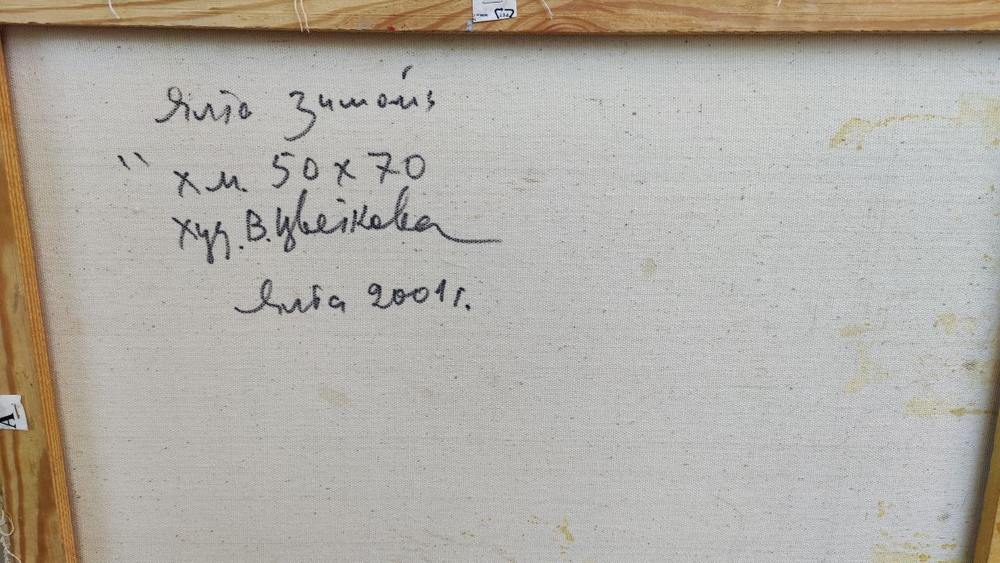 Ялта зимой
" х.м. 50 х 70
худ. В. Цветкова
Ялта 2001 г.
A